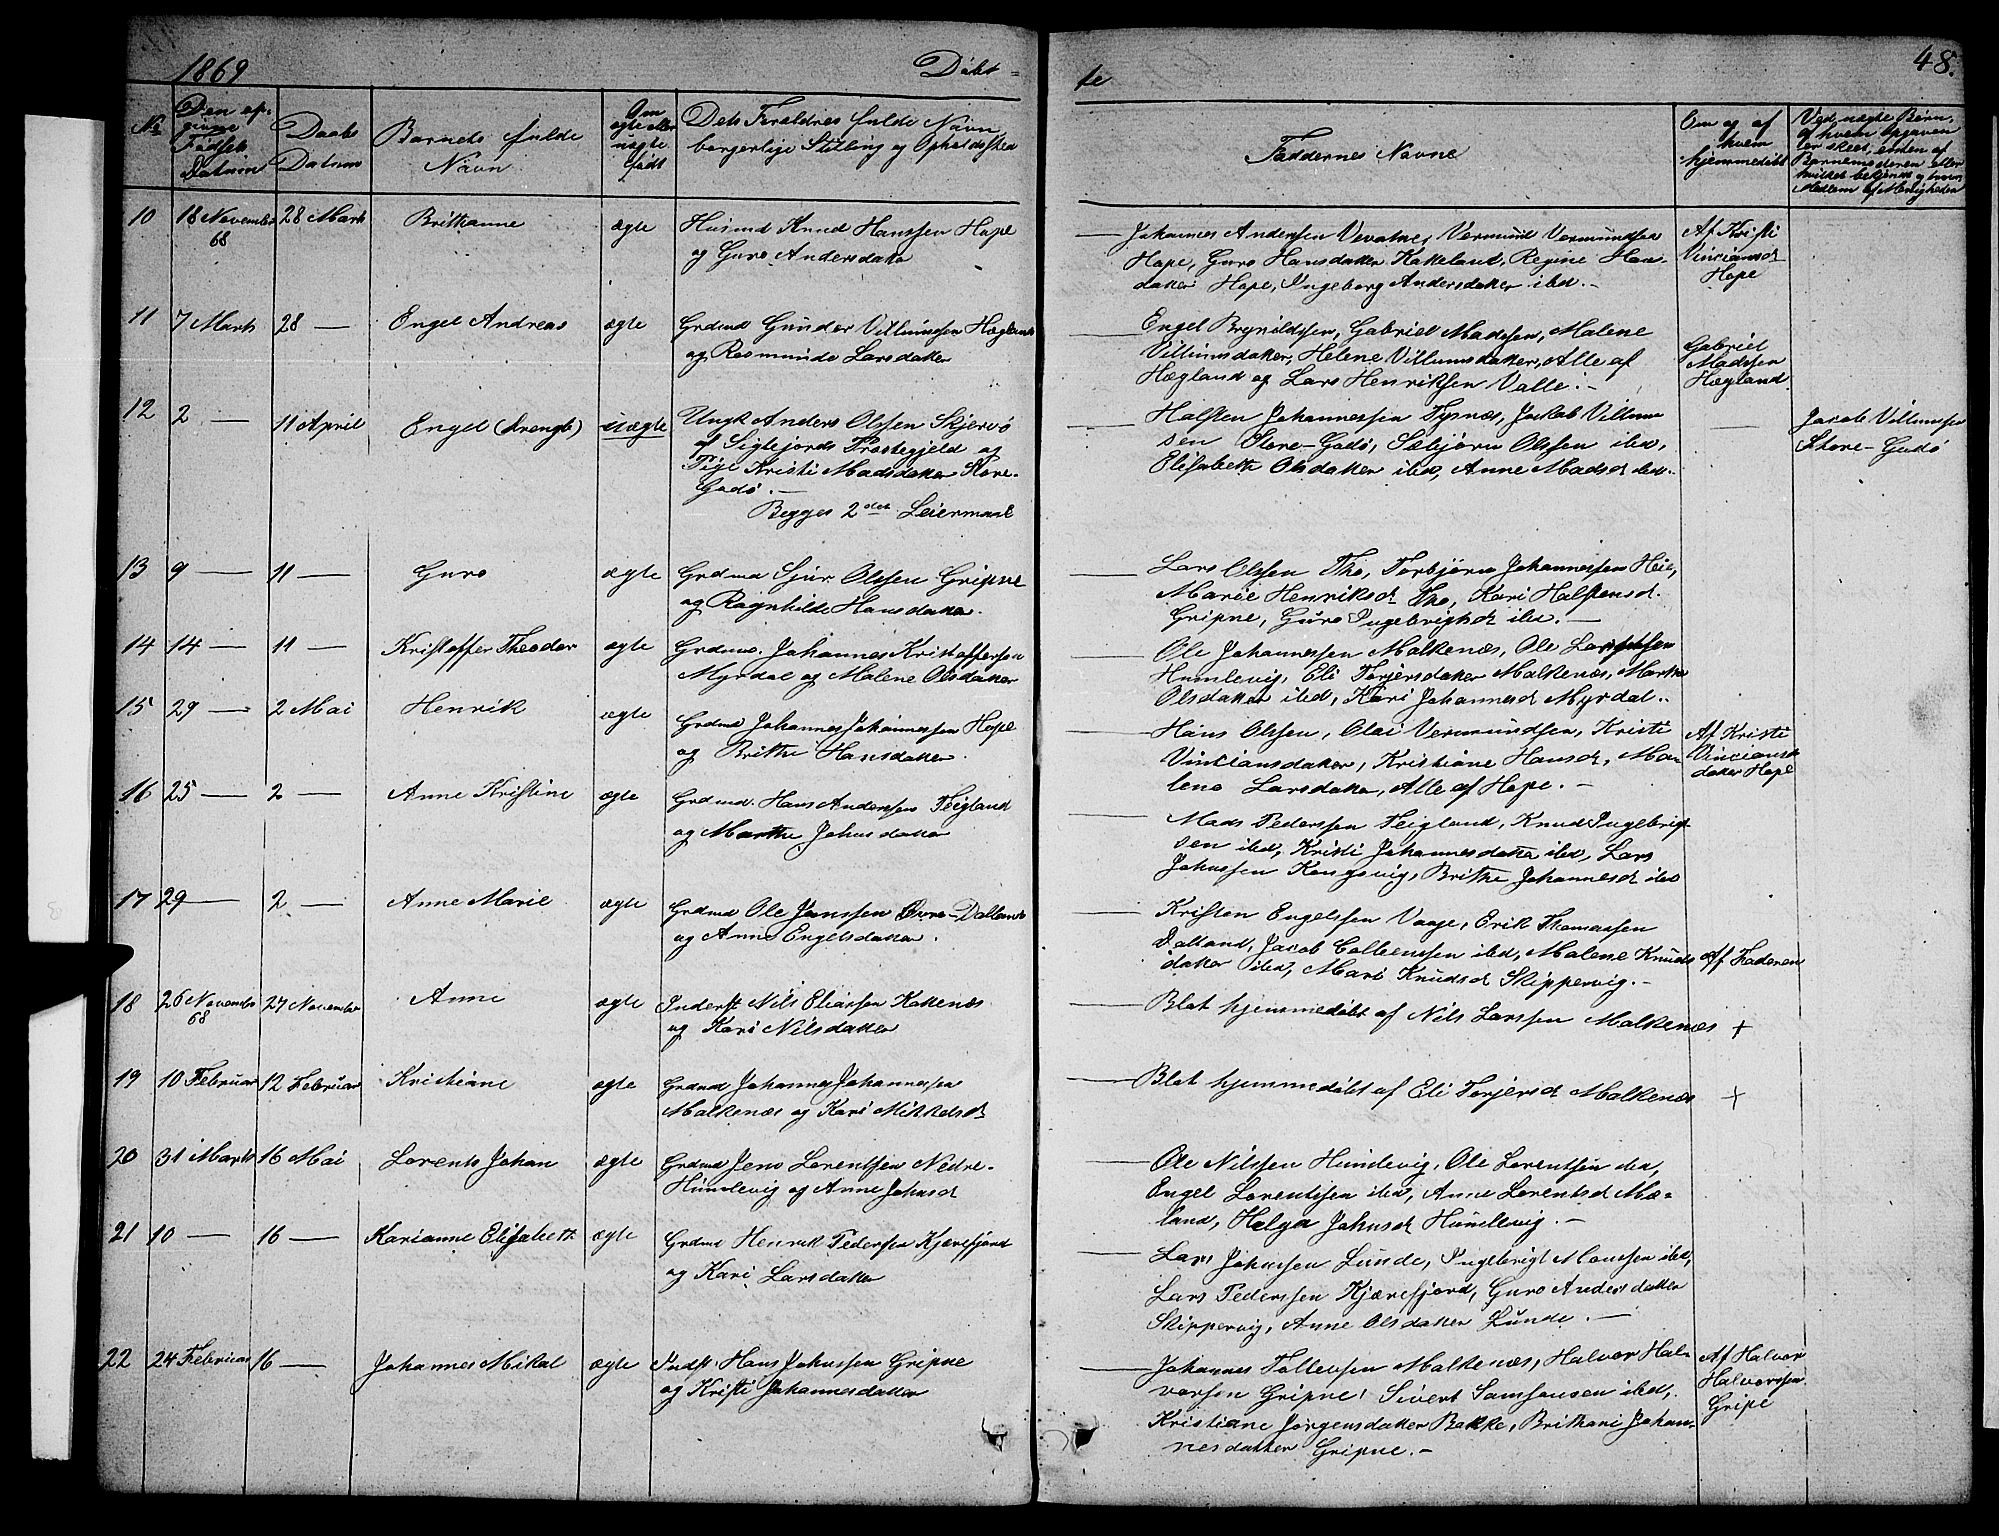 1869 Døbt-
te 48.
No
Den op-
givne
Fødsels
Datum
Daabs
Datum
Barnets fulde
Navn
Om
ægte eller
uægte
født
Dets Forældres fulde Navn,
borgerlige Stilling og Opholdssted
Faddernes Navne
Om og af
hvem
hjemmedøbt
Ved uægte Børn,
af hvem Opgaven
er skeet, enten af
Barnemoderen eller
hvilket bekjendt og trov.
Medlem af Menigheden
10 18 November 28 Marts Brithanne ægte Husmd Knud Hanssen Hope
68 og Guro Andersdatter
Johannes Anderssen Vevatne, Vermund Vermundsen Af Kristi
Hope, Guro Hansdatter Kakeland, Regine Han- Vinciansd
datter Hope, Ingeborg Andersdatter ibd.- Hope
11 7 Marts 28 — Engel Andreas ægte Grdmd Gunder Villumsen Hægland
og Rasmunde Larsdatter
Engel Brynildssen, Gabriel Madssen, Malene
Villumsdatter, Helene Villumsdatter, Alle af Gabriel
Hægland og Lars Henriksen Valle.- Madssen
Hægland
12 2 — 11 April Engel (Drengb) uægte Ungk Anders Olssen Skjervø
af Præstegjeld og
Pige Kristi Madsdatter Store-
Godø.-
Begges 2det Leiermaal
Halsten Johannessen Tysnæs, Jakob Villum Jacob Villumsen
sen Store-Godø, Sæbjørn Olssen ibd, — Store-Godø
Elisabeth Olsdatter ibd, Anne Madsd ibd.
13 9 — 11 — Guro ægte Grdmd Sjur Olssen Gripne
og Ragnhilde Hansdatter.
Lars Olssen Tho, Torbjørn Johannessen Heie,
Marie Henriksd Tho, Kari Halstensd.
Gripne, Guro Ingebrigtsd ibd.-
14 14 — 11 — Kristoffer Theodor ægte Grdmd. Johannes Kristoffersen
Myrdal og Malene Olsdatter
Ole Johannessen Malkenæs, Ole
Humlevig, Eli Torjersdatter Malkenæs, Marthe
Olsdatter ibd, Kari Johannesd Myrdal.
15 29 — 2 Mai Henrik ægte Grdmd Johannes Johannessen Hope
og Brithe Hansdatter.
Hans Olssen, Olai Vermundsen, Kristi Af Kristi
Vinciansdatter, Kristiane Hansd, Ma- Vincians-
lene Larsdatter, Alle af Hope.- datter Hope
16 25 — 2 — Anne Kristine ægte Grdmd. Hans Anderssen Teigland
og Marthe Johnsdatter
Mads Pederssen Teigland, Knud Ingebrigt
sen ibd, Kristi Johannesdatter ibd, Lars
Johnssen Kongsvig, Brithe Johannesd ibd
17 29 — 2 — Anne Marie ægte Grdmd Ole Janssen Øvre-Dalland
og Anne Engelsdatter.
Kristen Engelssen Vaage, Erik Thomassen
Dalland, Jacob Colbenssen ibd, Malene Knuds Af Faderen
datter ibd, Mari Knudsd Skippervig.-
18 26 November 27 November Anne ægte Inderst Nils Eliassen Kakenæs
68 og Kari Nilsdatter
Blot hjemmedøbt af Nils Larssen Malkenæs +
19 10 Februar 12 Februar Kristiane ægte Grdmd Johannes Johannessen
Malkenæs og Kari Mikkelsd
Blot hjemmedøbt af Eli Torjersd Malkenæs +
20 31 Marts 16 Mai Lorents Johan ægte Grdmd Jens Lorentsen Nedre-
Humlevig og Anne Johnsd
Ole Nilssen Humlevig, Ole Lorentsen ibd,
Engel Lorentssen ibd, Anne Lorentsd Mæ-
land, Helga Johnsd Humlevig.-
21 10 — 16 — Karianne Elisabeth ægte Grdmd Henrik Pederssen Kjærefjord
og Kari Larsdatter
Lars Johnssen Lunde, Ingebrigt Monssen ibd,
Lars Pederssen Kjærefjord, Guro Andersdatter
Skippervig, Anne Olsdatter Lunde.-
22 24 Februar 16 — Johannes Mikal ægte Indst Hans Johnssen Gripne
og Kristi Johannesdatter
Johannes Tollevsen Malkenæs, Halvor Hal- Af Halvor
vorsen Gripne, Sivert Samsonsen ibd, Halvorssen
Kristiane Jørgensdatter Bakke, Brithari Johan- Gripe
nesdatter Gripne.-